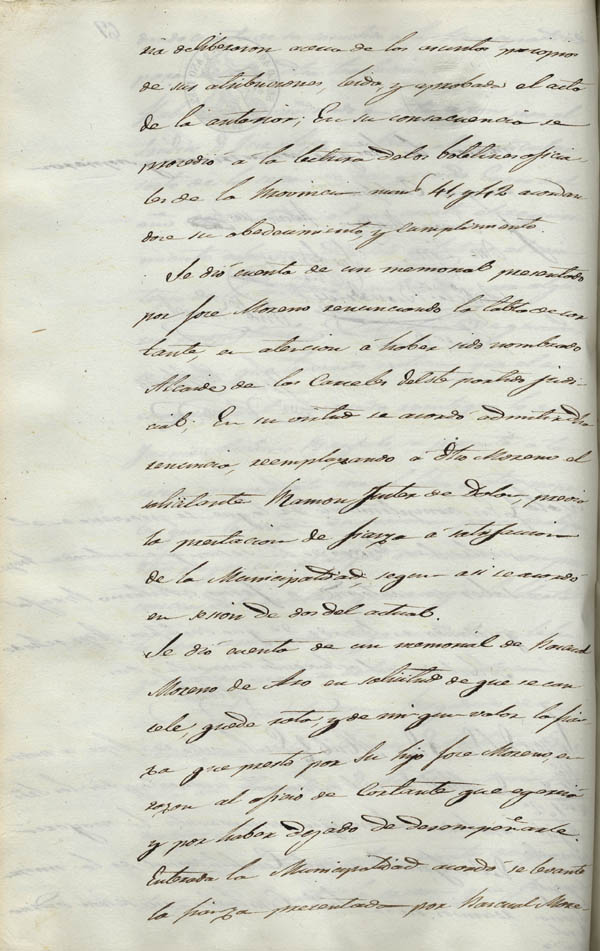 ria deliberaron acerca de los asuntos propios
de sus atribuciones, leida, y aprobada el acta
de la anterior; En su consecuencia se
procedio á la lectura de los boletines oficia
les de la Provincia num.s 41 y 42 acordan
dose su obedecimiento y cumplimiento.
Se dió cuenta de un memorial presentado
por Jose Moreno renunciando la tabla de cor
tante, en atencion á haber sido nombrado
Alcaide de las Carceles deeste partido judi
cial; En su virtud se acordó admitir dha
renuncia, reemplazando á dho Moreno el
solicitante Ramon de previa
la prestacion de fianza á satisfaccion
de la Municipalidad, segun asi se acordó
en sesion de dos del actual.
Se dió cuenta de un memorial de Pascual
Moreno de Aro en solicitud de que se can
cele, quede rota, y de ningun valor la fian
za que presto por su hijo Jose Moreno, en
razon al oficio de Cortante que egercia
y por haber dejado de desempeñarle.
Enterada la Municipalidad acordó se levante
la fianza presentada por Pascual More-